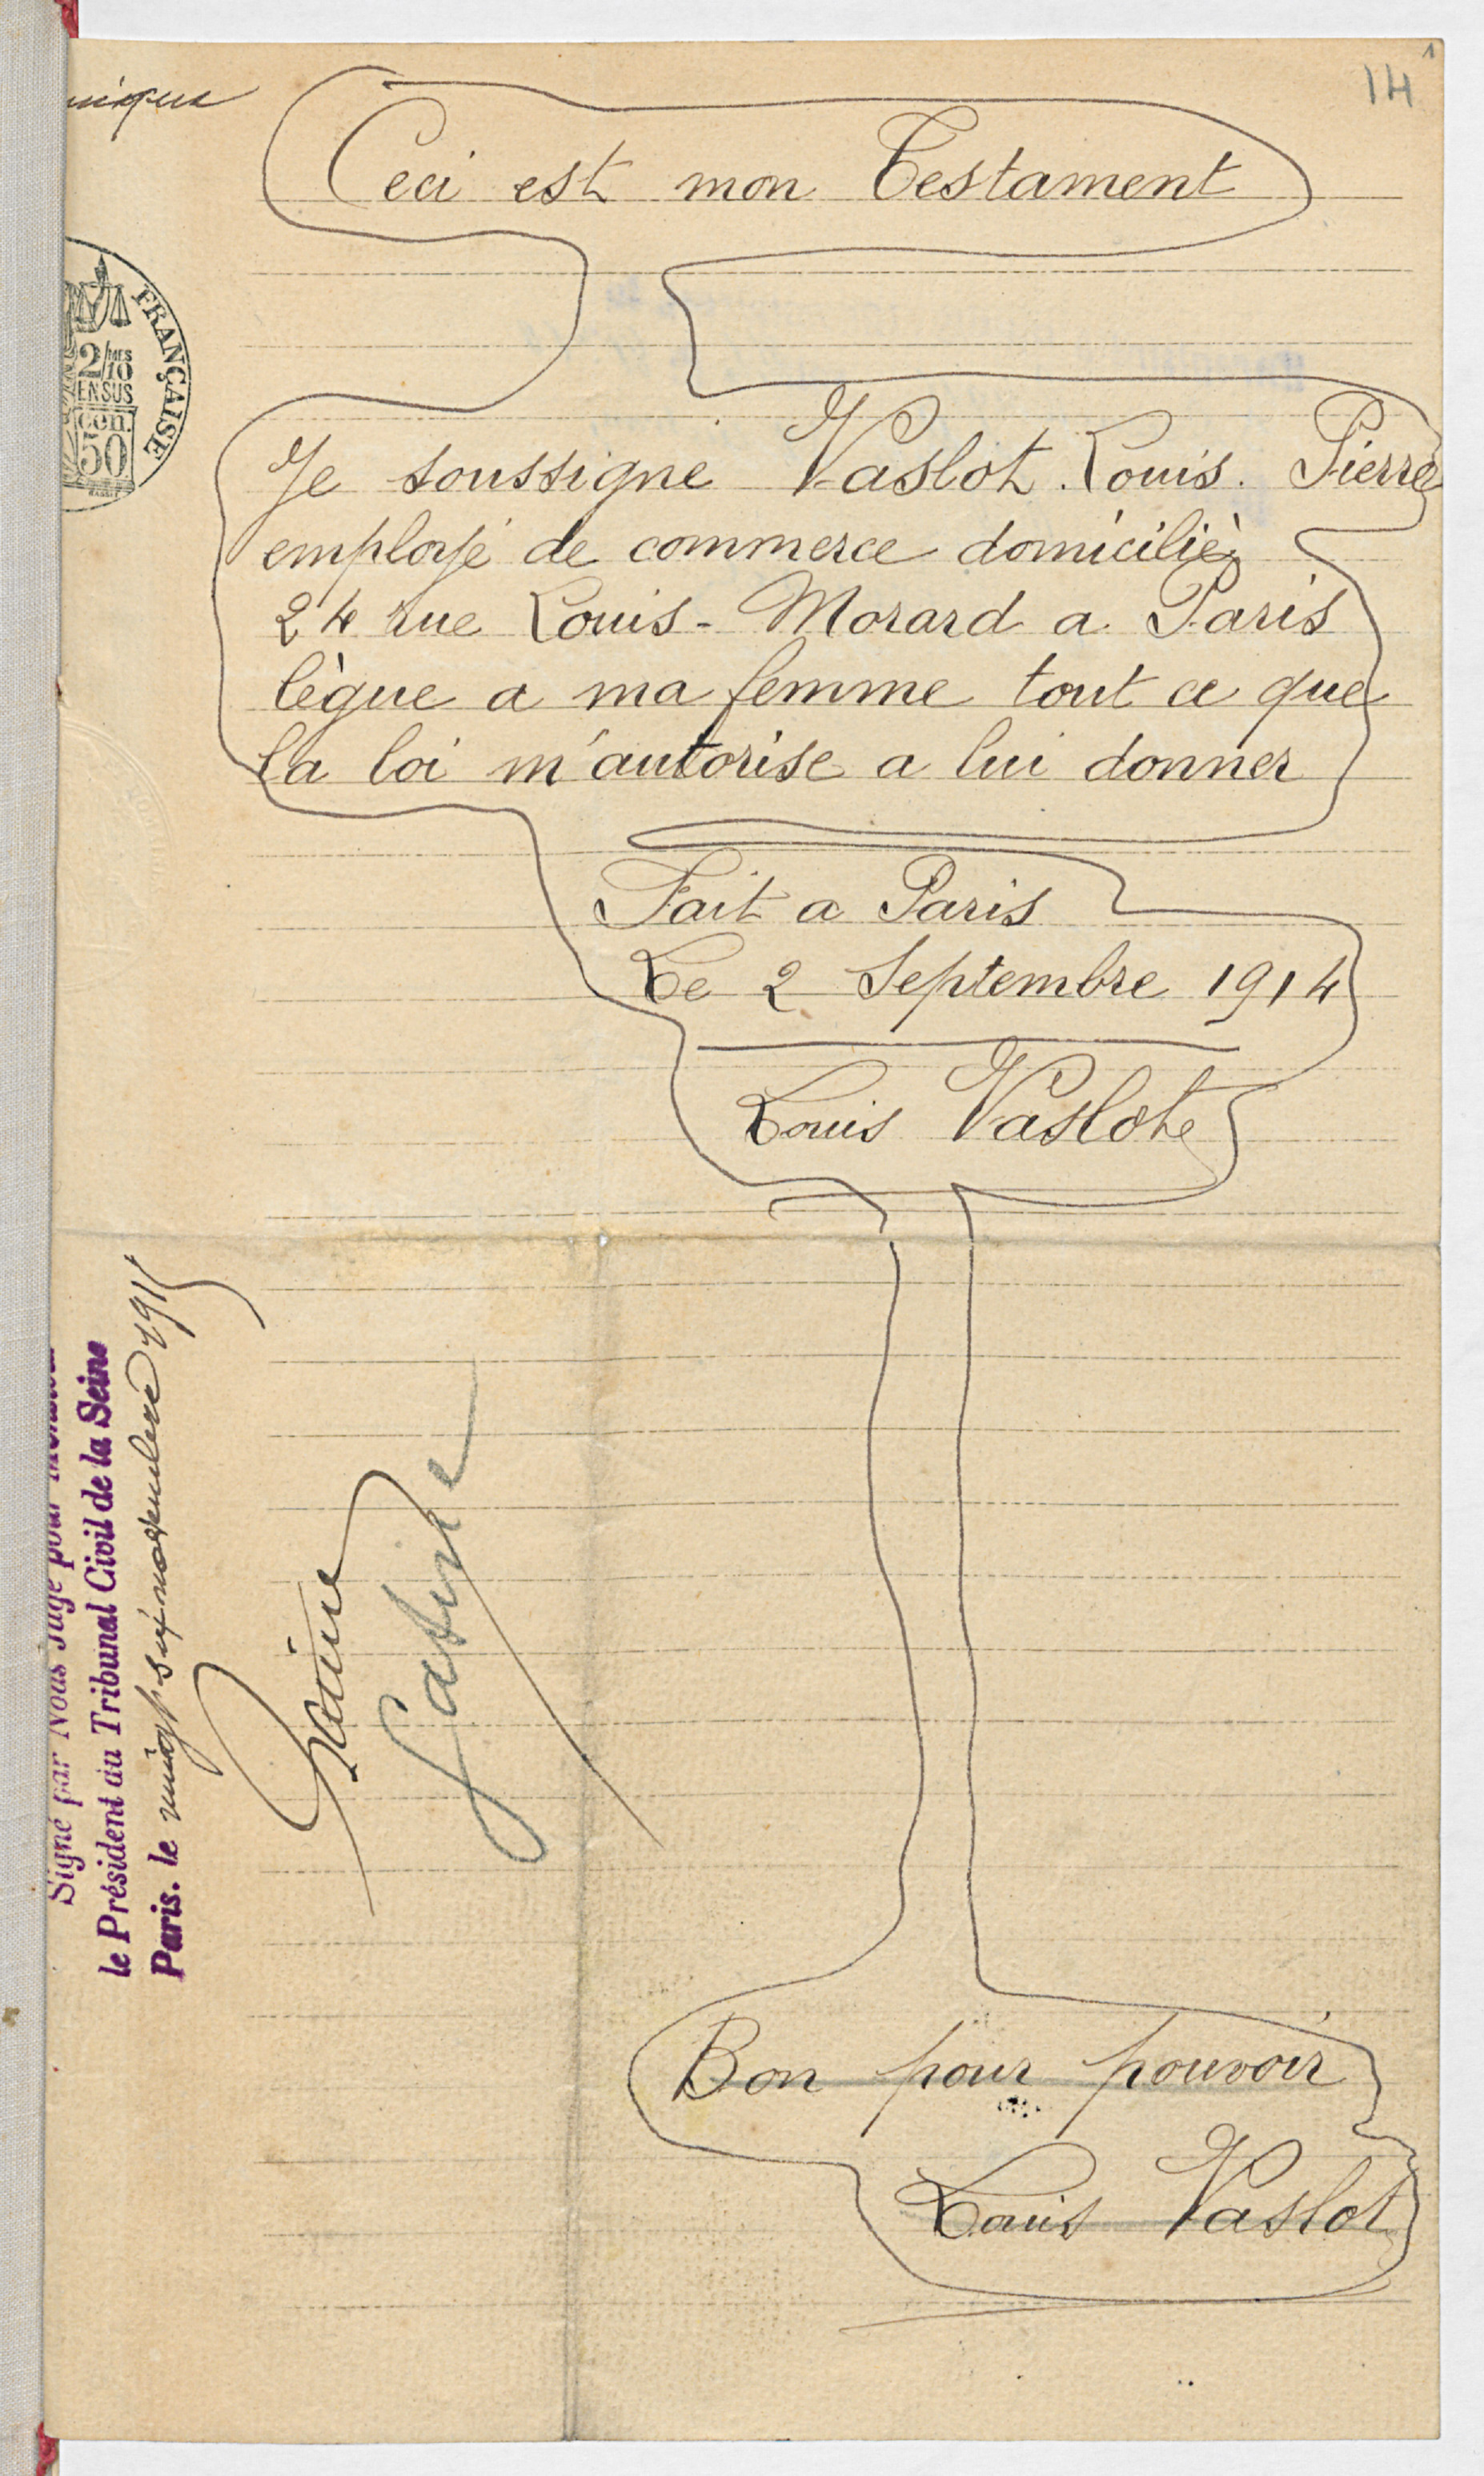 14
Ceci est mon Testament
FRANÇAISE
2/10
MES
EN SUS
50
cen.
Je soussigne Vaslot. Louis. Pierre
employé de commerce domicilié
24 rue Louis-Morard a Paris
lègue a ma femme tout ce que
la loi m'autorise a lui donner
Fait a Paris
Le 2 Septembre 1914
Louis Vaslot
Signé par Nous Juge pour Monsieur
le Président du Tribunal Civil de la Seine
Paris. le vingt six novembre 1915
Bon pour pouvoir
Louis Vaslot